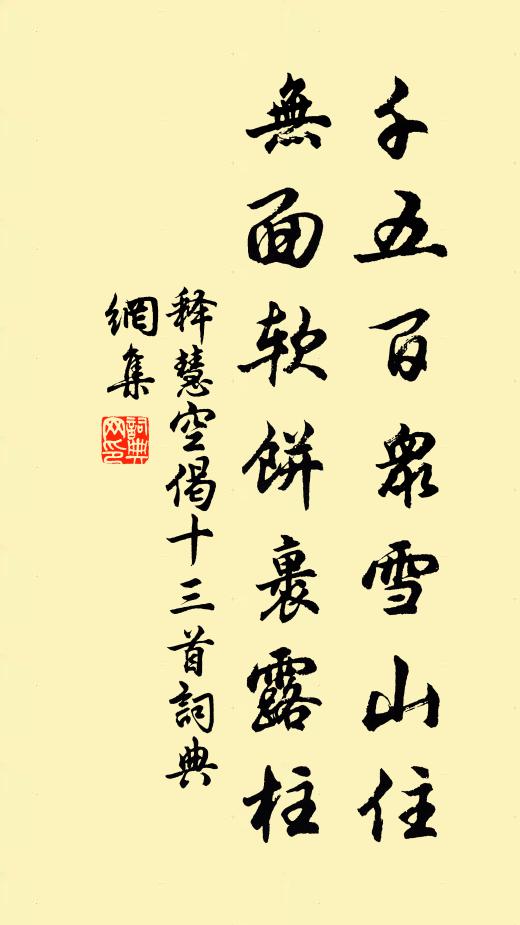 千五百衆雪山住
無面軟餅裹露柱
释慧空偈十三首詞典
網集
詞典
网印